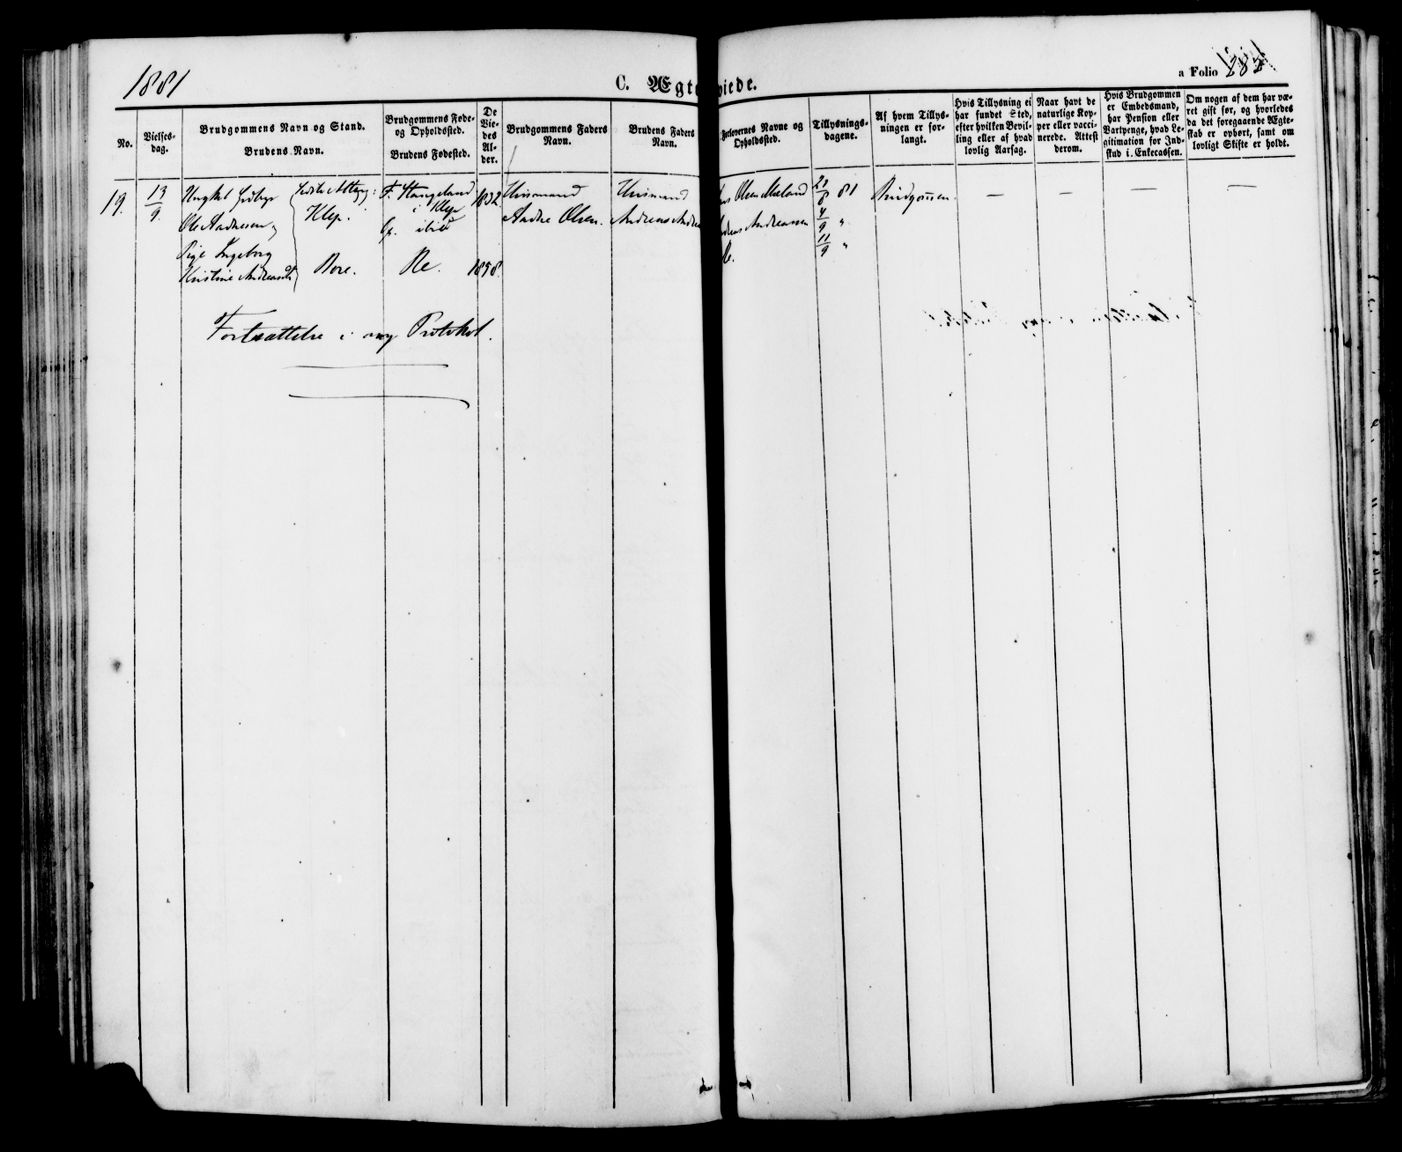 1881
C. Ægteviede.
a Folio 283
No.
Vielses-dag.
Brudgommens Navn og Stand.
Brudens Navn.
Brudgommens Føde- og Opholdssted.
Brudens Fødested.
De Vie-des Al-der.
Brudgommens Faders Navn.
Brudens Faders Navn.
Forlovernes Navne og Opholdssted.
Tillysnings-dagene.
Af hvem Tillys-ningen er for-langt.
Hvis Tillysning ei har fundet Sted, efter hvilken Bevil-ling eller af hvad lovlig Aarsag.
Naar havt de naturlige Kop-per eller vacci-nerede. Attest derom.
Hvis Brudgommen er Embedsmand, har Pension eller Vartpenge, hvad Le-gitimation for Ind-skud i Enkecassen.
Om nogen af dem har væ-ret gift før, og hvorledes da det foregaaende Ægte-skab er ophørt, samt om lovligt Skifte er holdt.
19. 13/9 Ungkel F. Stangeland 1852 Husmand Husmand Olsen 21/8 81 Brudgommen — — — —
Klep. i Klep Andre Olsen. Andreas Andreasen 4/9 "
Ole Aadnesen
Pige Ingeborg 11/9 "
Kristine Andreasdt Bore. Re. 1858
Fortsættelse i ny Protokol.